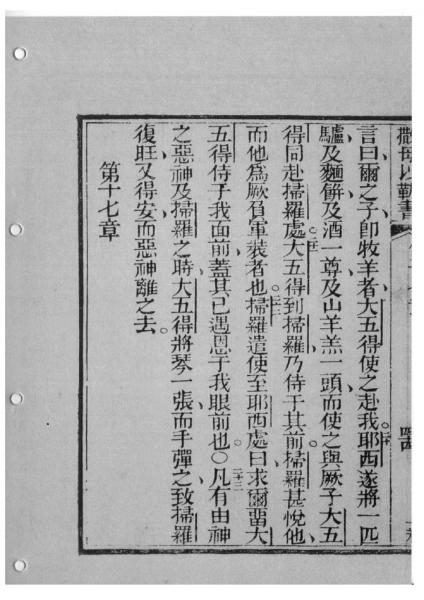 撒母以勒書
言曰爾之子即牧羊者大五得使之赴我二十耶西遂將一匹
驢及麵餅及酒一尊及山羊羔一頭而使之與厥子大五
得同赴掃羅處二十一大五得到掃羅乃侍于其前掃羅甚悅他
而他為厥負軍裝者也二十二掃羅遣使至耶西處曰求爾畱大
五得侍于我面前蓋其已遇恩于我眼前也○二十三凡有由神
之惡神及掃羅之時大五得將琴一張而手彈之致掃羅
復旺又得安而惡神離之去
第十七章